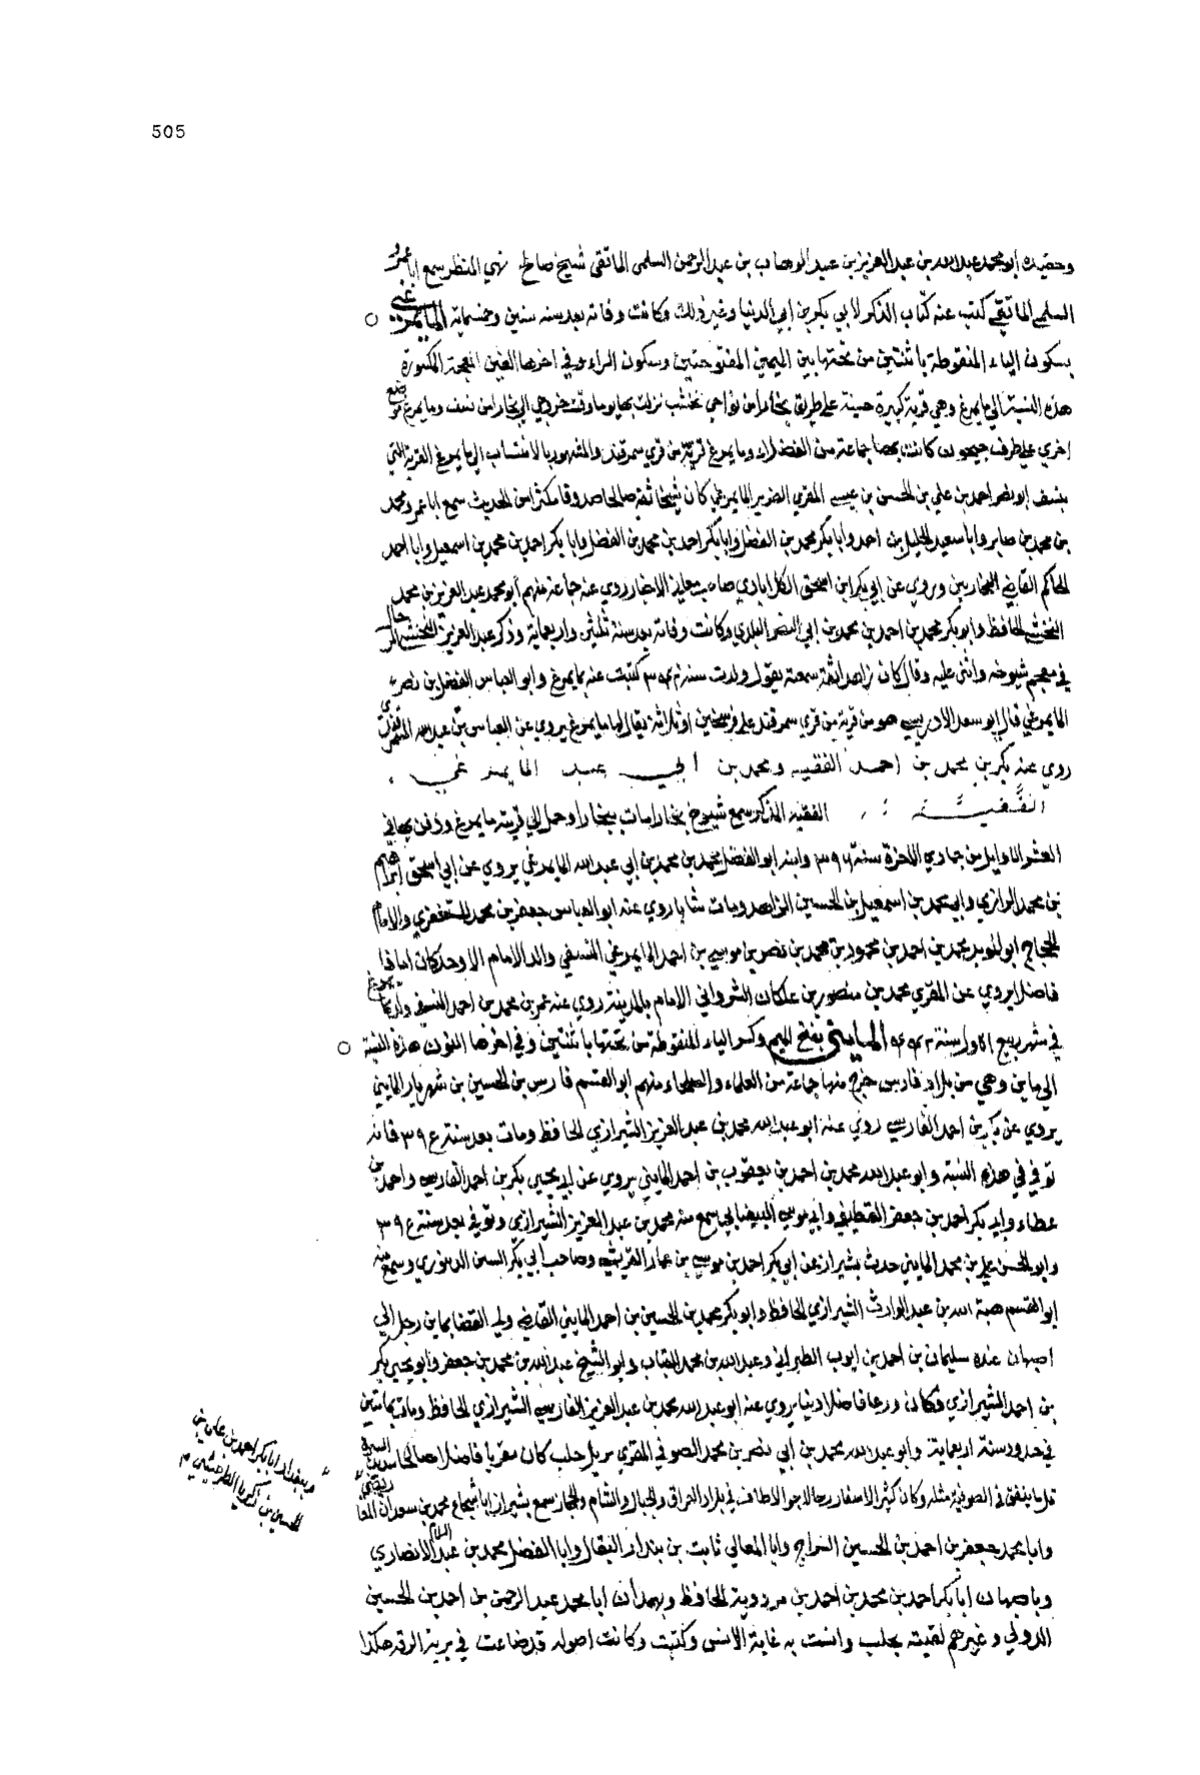 505
وحفيده ابو محمد عبد الله بن عبد العزيز بن عبد الوهاب بن عبد الرحمن السلمى المايقى شيخ صالح بهي المنظر سمع ابا عمرو
السلمى المايقي كتب عنه كتاب الذكر لابي بكر بن ابي الدنيا وغير ذلك وكانت وفاته بعد سنه ستين وخمسمايه المايمرغي
بسكون الياء المنقوطة باثنتين من تحتها بين الميمين المفتوحتين وسكون الراء وفي اخرها الغين المعجمة المكسورة
هذه النسبة الي مايمرغ وهي قرية كبيرة حسنة على طريق بخارا من نواحي نخشب نزلت بها يوما وقت خروجي الي بخارا من نسف ومايمرغ موضع
اخري على طرف جيحون كانت بها جماعة من الفضلاء ومايمرغ قرية من قري سمرقند والمشهور بالانتساب الي مايمرغ القرية التي
بنسف ابو نصر احمد بن علي بن الحسن بن عيسى المقري الضرير المايمرغي كان شيخا ثقة صالحا صدوقا مكثرا من الحديث سمع ابا عمرو محمد
بن محمد بن صابر وابا سعيد الخليل بن احمد وابا بكر محمد بن الفضل وابا بكر احمد بن محمد بن الفضل وابا بكر احمد بن محمد بن اسمعيل وابا احمد
الحاكم القاضي البخاريين وروي عن ابي بكر ابن اسحق الكلاباذي صاحب معاني الاخبار روي عنه جماعة منهم ابو محمد عبد العزيز بن محمد
النخشبي الحافظ وابو بكر محمد بن احمد بن محمد بن ابي النصر البلدي وكانت وفاته بعد سنة ثلثين واربعماية وذكر عبد العزيز النخشبي
في معجم شيوخه واثنى عليه وقال كان زاهدا ثقة سمعته يقول ولدت سنه كتبت عنه بمايمرغ وابو العباس الفضل بن نصر
المايمرغي قال ابو سعد الادريسي هو من قرية من قري سمرقند على فرسخين او ثلاثة يقال لها مايمرغ يروي عن العباس بن عبد الله
روي عنه بكر بن محمد بن احمد الفقيه ومحمد بن ابي عبد المايمرغي
الفقيه الفقيه المذكر سمع شيوخ بخارا مات ببخارا وحمل الي قريته مايمرغ ودفن بها في
العشر الاوايل من جمادي الاخرة سنة ٣٩٤ وابنه ابو الفضل محمد بن محمد بن ابي عبد الله المايمرغي يروي عن ابي اسحق ابراهيم
بن محمد الرازي وابي محمد بن اسمعيل بن الحسين الزاهد ومات شابا روي عنه ابو العباس جعفر بن محمد المستغفري والامام
الحجاج ابو المويد محمد بن احمد بن محمود بن محمد بن نصر بن موسي بن احمد المايمرغي النسفي والد الامام الاوحد كان اماما
فاضلا يروي عن المقري محمد بن منصور بن علكان الشرواني الامام بالمدينة روي عنه عمر بن محمد بن احمد النسفي
في شهر ربيع الاول سنة المايني بفتح الميم وكسر الياء المنقوطة من تحتها باثنتين وفي اخرها النون هذه النسبة
الي ماين وهي من بلاد فارس خرج منها جماعة من العلماء والصلحاء منهم ابو القسم فارس بن الحسين بن شهريار المايني
يروي عن بكر بن احمد الفارسي روي عنه ابو عبد الله محمد بن عبد العزيز الشيرازي الحافظ ومات بعد سنة ٣٩٤ فانه
توفي في هذه السنة وابو عبد الله محمد بن احمد بن يعقوب بن احمد المايني يروي عن ابي يحيي بكر بن احمد الفارسي واحمد بن
عطاء وابي بكر احمد بن جعفر القطيفي وابي موسى البيضاي سمع منه محمد بن عبد العزيز الشيرازي وتوفي بعد سنة ٣٩٤
وابو الحسن علي بن محمد المايني حدث بشيراز عن ابي بكر احمد بن موسي بن عمار القرشي وصاحب ابي بكر السني الدينوري وسمع منه
ابو القسم هبة الله بن عبد الوارث الشيرازي الحافظ وابو بكر محمد بن الحسين بن احمد المايني القاضي ولي القضا بماين رحل الي
اصبهان عنده سليمان بن احمد بن ايوب الطبراني وعبد الله بن محمد القباب وابو الشيخ عبد الله بن محمد بن جعفر وابو يحيي بكر
بن احمد الشيرازي وكان ورعا فاضلا دينا يروي عنه ابو عبد الله محمد بن عبد العزيز الفارسي الشيرازي الحافظ ومات بماين
في حدود سنة اربعماية وابو عبد الله محمد بن ابي نصر بن محمد الصوفي المقري نزيل حلب كان مقريا فاضلا صالحا سديد السيرة
قل ما يتفق في الصوفية مثله وكان كثير الاسفار رحالا جوالا طاف في بلاد العراق والجبال والشام والحجاز سمع بشيراز ابا شجاع محمد بن سودان المقاريضي
وابا محمد جعفر بن احمد بن الحسين السراج وابا المعالي ثابت بن بندار البقال وابا الفضل محمد بن عبد السلام الانصاري
وباصبهان ابا بكر احمد بن محمد بن احمد بن مردوية الحافظ وبهمدان ابا محمد عبد الرحمن بن احمد بن الحسين
الدوني وغيرهم لقيته بحلب وانست به غاية الانس وكتبت وكانت اصوله قد ضاعت في برية الرقه هكذا
وببغداد ابا بكر احمد بن علي بن
الحسين بن زكريا الطريثيثي